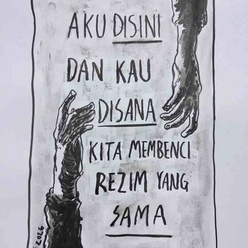 AKU DISINI
DAN KAU
DISANA
KITA MEMBENCI
REZIM YANG
SAMA
2026